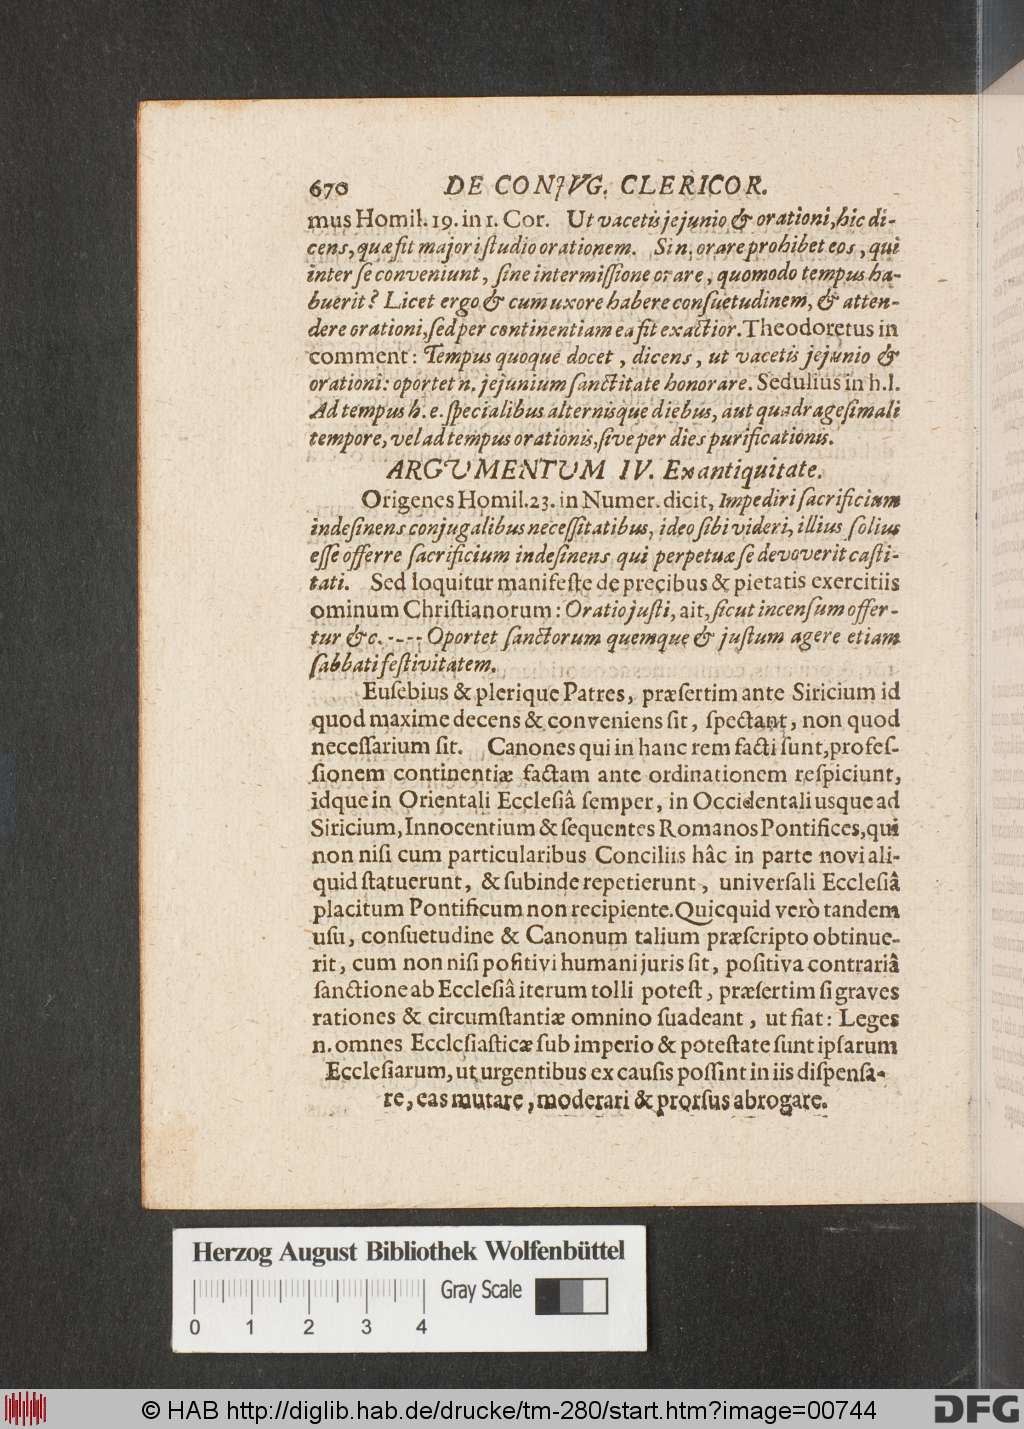 670 DE CONJVG. CLERICOR.
mus Homil. 19. in 1. Cor. Ut vacetis jejunio & orationi, hic di-
cens, quæ fit majori ſtudio orationem. Si n. orare prohibet eos, qui
inter ſe conveniunt, ſine intermiſſione orare, quomodo tempus ha-
buerit? Licet ergo & cum uxore habere conſuetudinem, & atten-
dere orationi, ſed per continentiam ea fit exactior. Theodoretus in
comment: Tempus quoque docet, dicens, ut vacetis jejunio &
orationi: oportet n. jejunium ſanctitate honorare. Sedulius in h. l.
Ad tempus h. e. ſpecialibus alternisque diebus, aut quadrageſimali
tempore, vel ad tempus orationis, ſive per dies purificationis.
ARGUMENTUM IV. Ex antiquitate.
Origenes Homil. 23. in Numer. dicit, Impediri ſacrificium
indeſinens conjugalibus neceſſitatibus, ideo ſibi videri, illius ſolius
eſſe offerre ſacrificium indeſinens qui perpetuæ ſe devoverit caſti-
tati. Sed loquitur manifeſte de precibus & pietatis exercitiis
ominum Chriſtianorum: Oratio juſti, ait, ſicut incenſum offer-
tur &c. ---- Oportet ſanctorum quemque & juſtum agere etiam
ſabbati feſtivitatem.
Euſebius & plerique Patres, præſertim ante Siricium id
quod maxime decens & conveniens ſit, ſpectant, non quod
neceſſarium ſit. Canones qui in hanc rem facti ſunt, profeſ-
ſionem continentiæ factam ante ordinationem reſpiciunt,
idque in Orientali Eccleſiâ ſemper, in Occidentali usque ad
Siricium, Innocentium & ſequentes Romanos Pontifices, qui
non niſi cum particularibus Conciliis hâc in parte novi ali-
quid ſtatuerunt, & ſubinde repetierunt, univerſali Eccleſiâ
placitum Pontificum non recipiente. Quicquid verò tandem
uſu, conſuetudine & Canonum talium præſcripto obtinue-
rit, cum non niſi poſitivi humani juris ſit, poſitiva contrariâ
ſanctione ab Eccleſiâ iterum tolli poteſt, præſertim ſi graves
rationes & circumſtantiæ omnino ſuadeant, ut fiat: Leges
n. omnes Eccleſiaſticæ ſub imperio & poteſtate ſunt ipſarum
Eccleſiarum, ut urgentibus ex cauſis poſſint in iis diſpenſa-
re, eas mutare, moderari & prorſus abrogare.
Herzog August Bibliothek Wolfenbüttel
Gray Scale
0 1 2 3 4
© HAB http://diglib.hab.de/drucke/tm-280/start.htm?image=00744
DFG